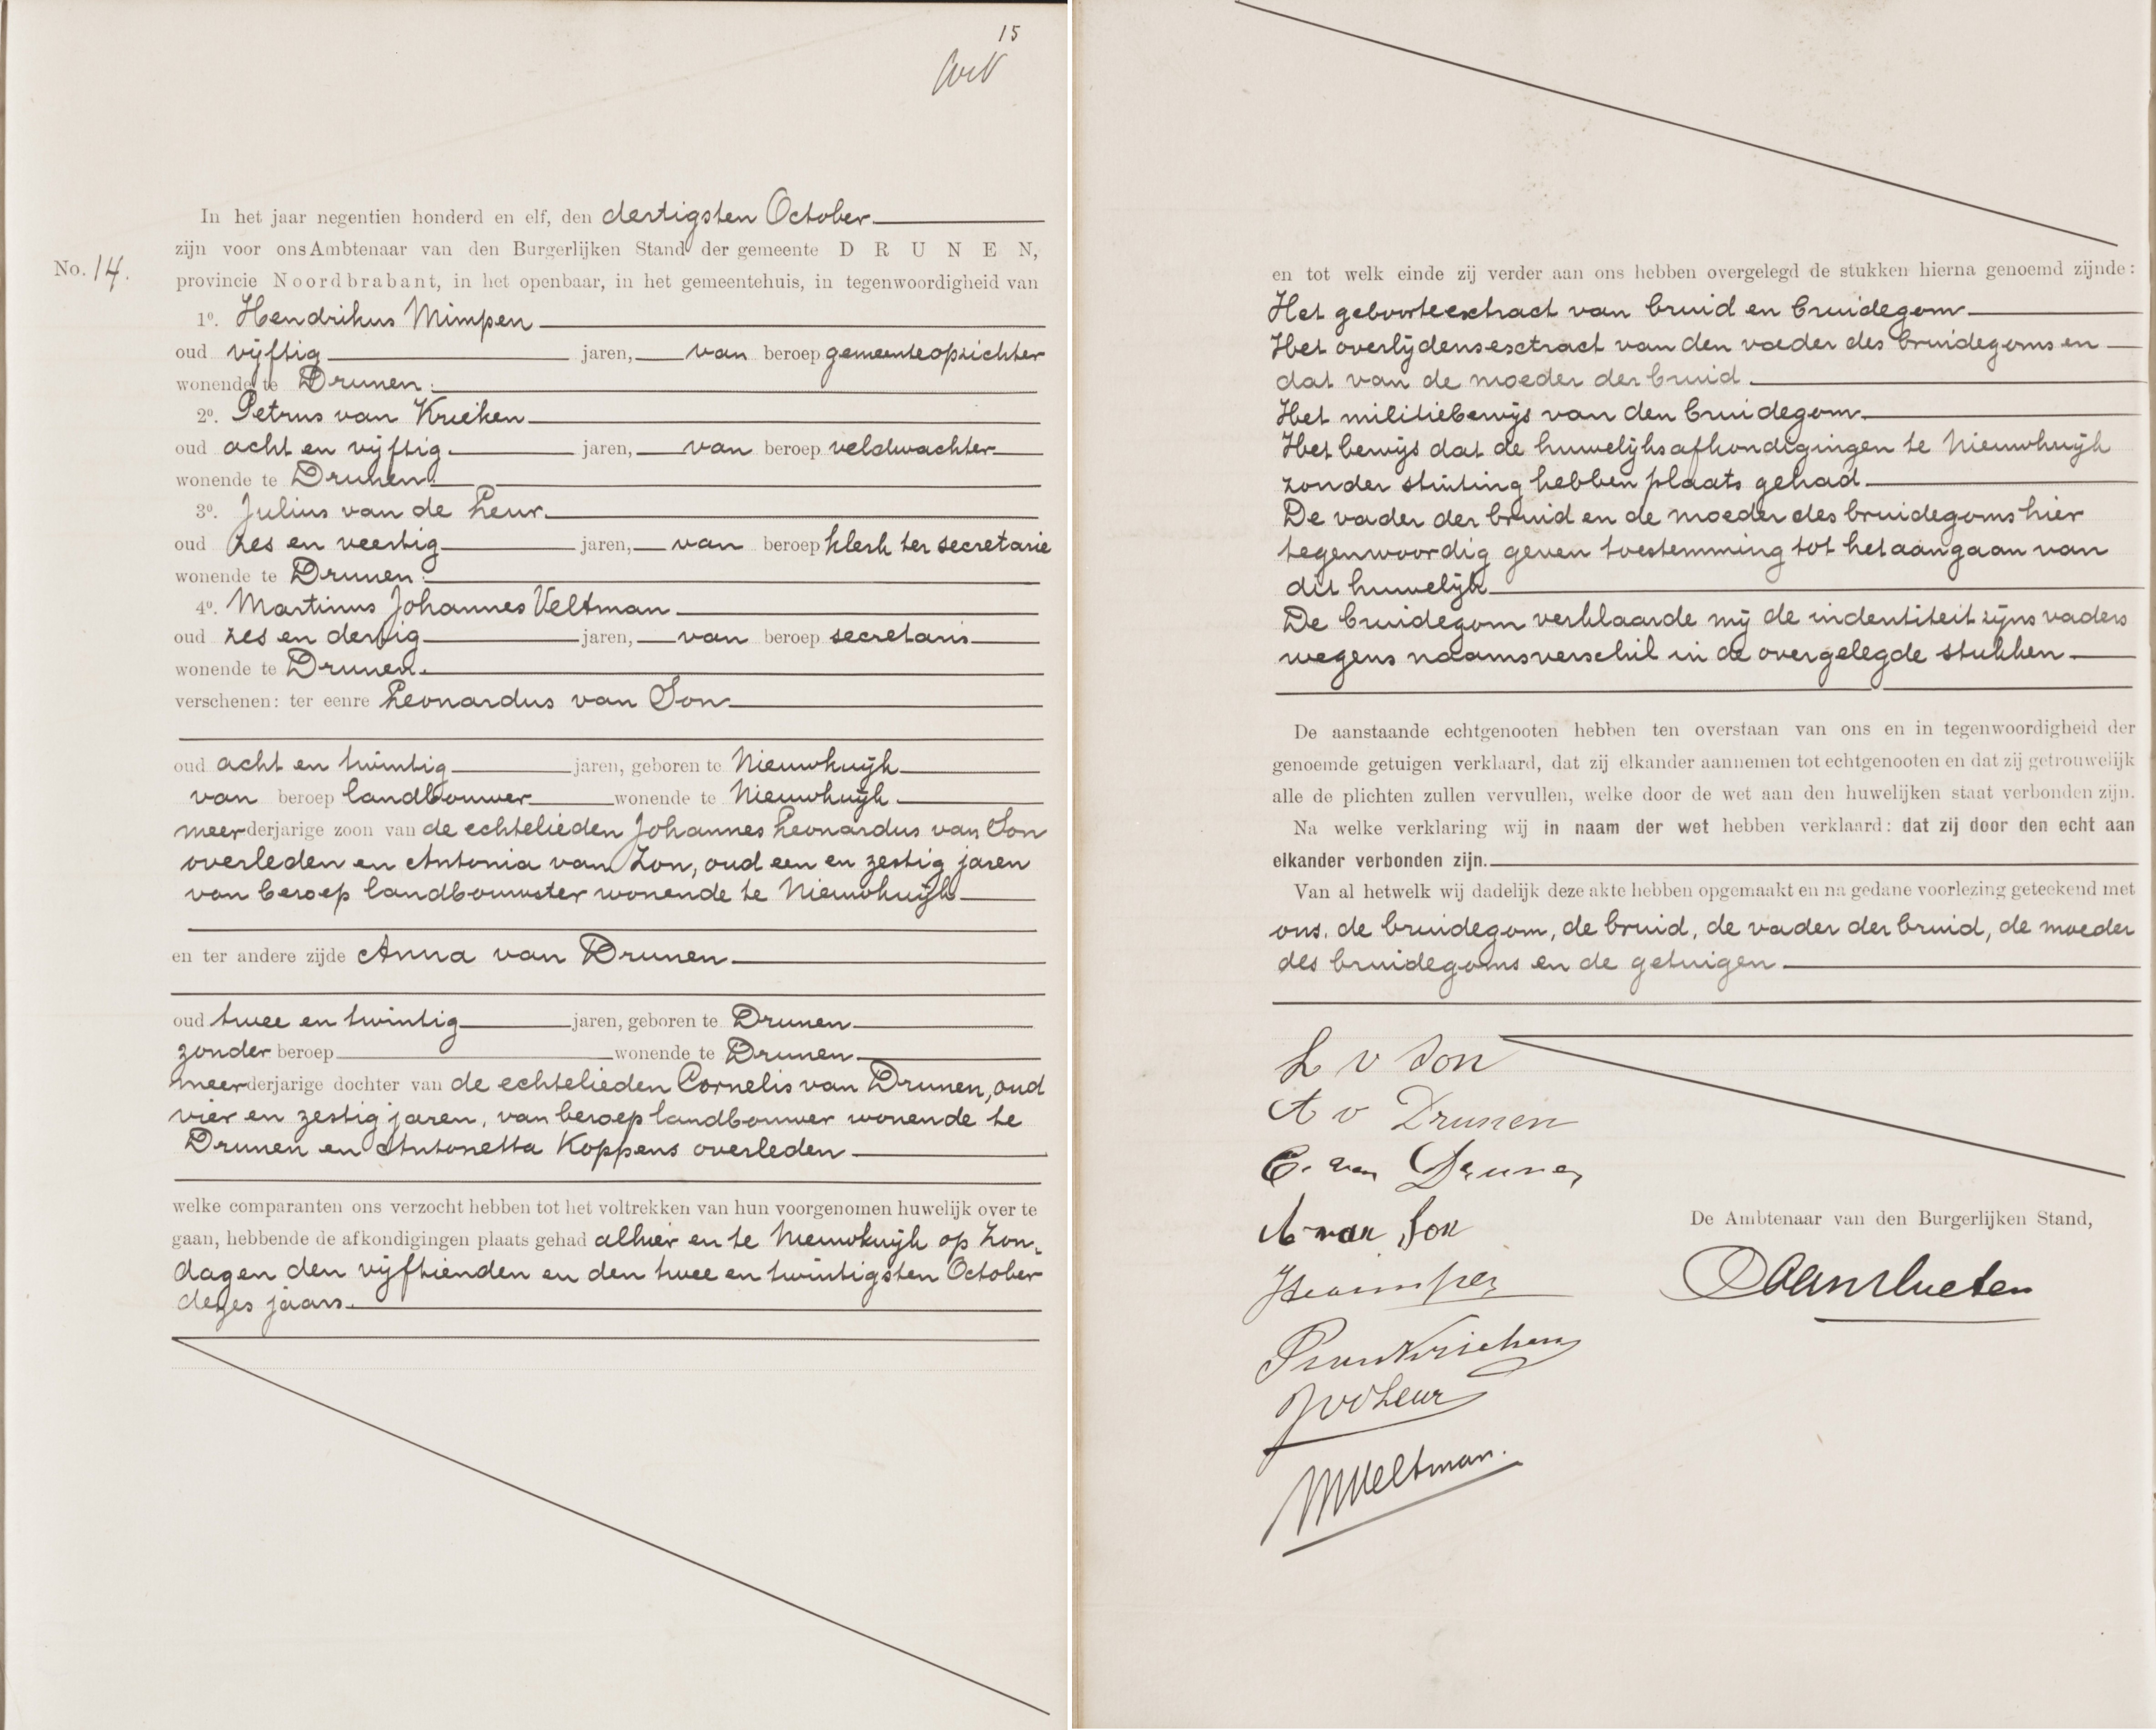 15
In het jaar negentien honderd en elf, den dertigsten October
zijn voor ons Ambtenaar van den Burgerlijken Stand der gemeente D R U N E N,
No. 14.
provincie Noordbrabant, in het openbaar, in het gemeentehuis, in tegenwoordigheid van
1º. Hendrikus Mimpen
oud vijftig jaren, van beroep gemeenteopzichter
wonende te Drunen.
2º. Petrus van Krieken
oud acht en vijftig. jaren, van beroep veldwachter
wonende te Drunen.
3º. Julius van de Leur.
oud zes en veertig jaren, van beroep klerk ter secretarie
wonende te Drunen.
4º. Martinus Johannes Veltman
oud zes en dertig jaren, van beroep secretaris
wonende te Drunen.
verschenen: ter eenre Leonardus van Son
oud acht en twintig jaren, geboren te Nieuwkuijk
van beroep landbouwer wonende te Nieuwkuijk
meerderjarige zoon van de echtelieden Johannes Leonardus van Son
overleden en Antonia van Zon, oud een en zestig jaren
van beroep landbouwster wonende te Nieuwkuijk
en ter andere zijde Anna van Drunen
oud twee en twintig jaren, geboren te Drunen
zonder beroep wonende te Drunen
meerderjarige dochter van de echtelieden Cornelis van Drunen, oud
vier en zestig jaren, van beroep landbouwer wonende te
Drunen en Antonetta Koppens overleden
welke comparanten ons verzocht hebben tot het voltrekken van hun voorgenomen huwelijk over te
gaan, hebbende de afkondigingen plaats gehad alhier en te Nieuwkuijk op Zon-
dagen den vijftienden en den twee en twintigsten October
dezes jaars.
en tot welk einde zij verder aan ons hebben overgelegd de stukken hierna genoemd zijnde:
Het geboorteextract van bruid en bruidegom
Het overlijdensextract van den vader des bruidegoms en
dat van de moeder der bruid.
Het militiebewijs van den bruidegom.
Het bewijs dat de huwelijksafkondigingen te Nieuwkuijk
zonder stuiting hebben plaats gehad.
De vader der bruid en de moeder des bruidegoms hier
tegenwoordig geven toestemming tot het aangaan van
dit huwelijk
De bruidegom verklaarde mij de indentiteit zijns vaders
wegens naamsverschil in de overgelegde stukken.
De aanstaande echtgenooten hebben ten overstaan van ons en in tegenwoordigheid der
genoemde getuigen verklaard, dat zij elkander aannemen tot echtgenooten en dat zij getrouwelijk
alle de plichten zullen vervullen, welke door de wet aan den huwelijken staat verbonden zijn.
Na welke verklaring wij in naam der wet hebben verklaard: dat zij door den echt aan
elkander verbonden zijn.
Van al hetwelk wij dadelijk deze akte hebben opgemaakt en na gedane voorlezing geteekend met
ons, de bruidegom, de bruid, de vader der bruid, de moeder
des bruidegoms en de getuigen
L v Son
A v Drunen
C. van Drunen
A van Son
De Ambtenaar van den Burgerlijken Stand,
HMimpen
P van Krieken
JvdLeur
MVeltman.